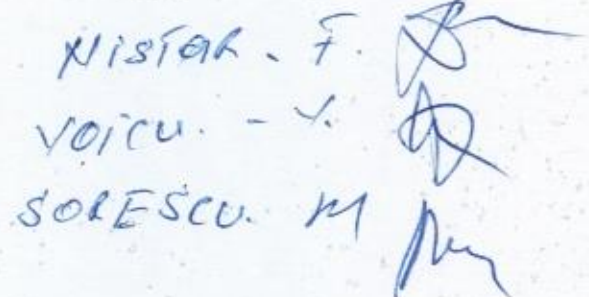 NISTOR. F.
VOICU. - V.
SORESCU. M